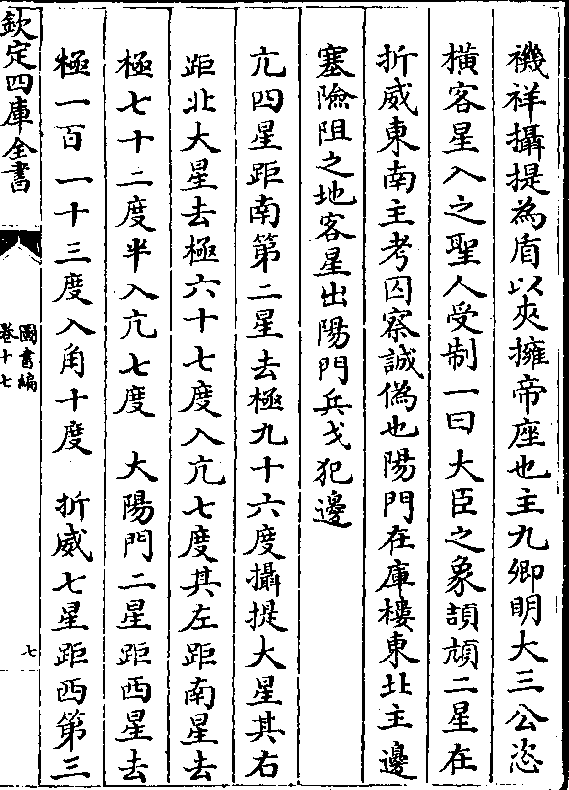 禨祥攝提為盾以夾擁帝座也主九卿明大三公恣
横客星入之聖人受制一曰大臣之象頡頏二星在
折威東南主考囚察誠偽也陽門在庫樓東北主邊
塞險阻之地客星出陽門兵戈犯邊
亢四星距南第二星去極九十六度攝提大星其右
距北大星去極六十七度入亢七度其左距南星去
極七十二度半入亢七度　大陽門二星距西星去
極一百一十三度入角十度　折威七星距西第三
欽定四庫全書
圖書編
卷十七
七